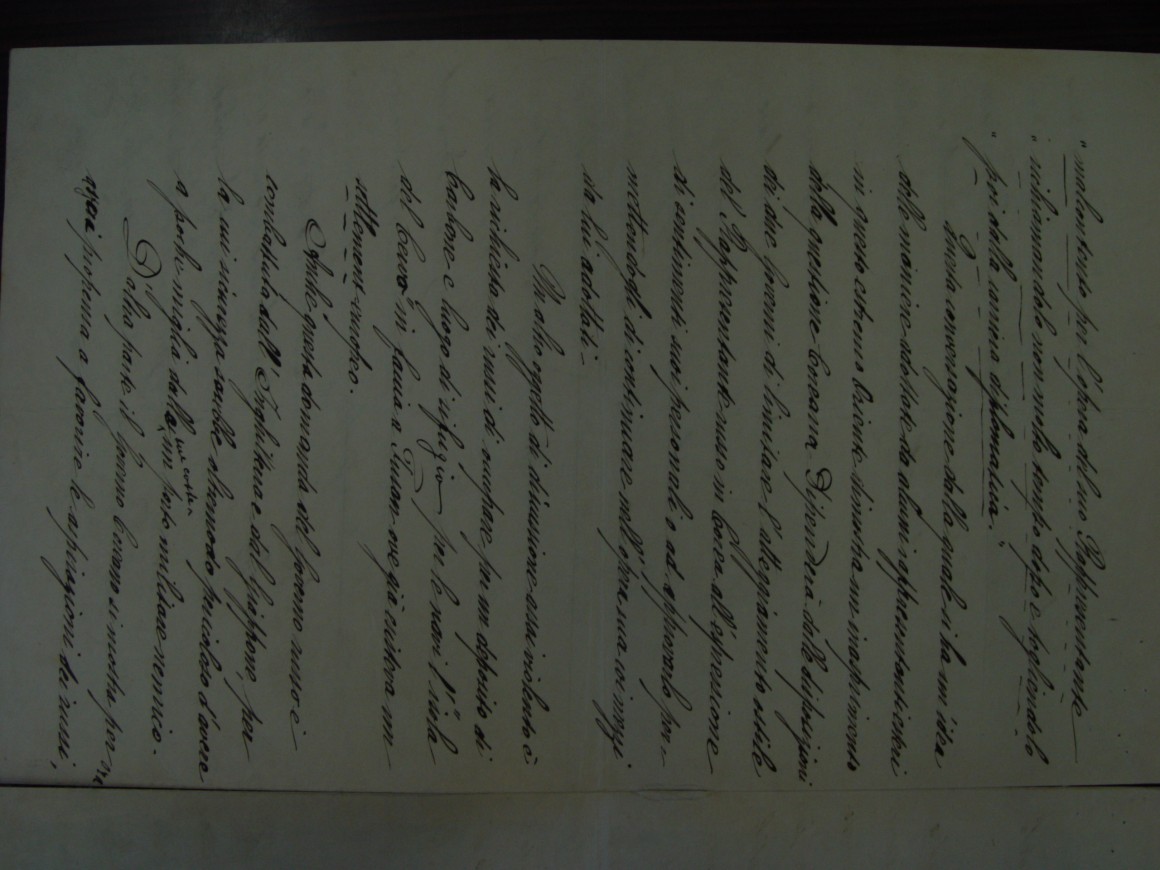 " malcontento per l'opera del suo Rappresentante
" richiamandolo non molto tempo dopo e togliendolo
" poi dalla carriera diplomatica. "
Questa conversazione dalla quale si ha un'idea
delle maniere adottate da alcuni rappresentanti esteri
in questo estremo Oriente dimostra un inasprimento
della questione Coreana. Dipenderà dalle disposizioni
di due Governi di limitare l'atteggiamento ostile
del Rappresentante russo in Corea all'espressione
di sentimenti suoi personali o ad approvarlo per-
mettendogli di continuare nell'opera sua coi mezzi
da lui adottati.-
Un altro oggetto di discussione assai violento è
la richiesta dei russi di occupare per un deposito di
carbone e luogo di rifugio per le navi l'isola
del Cervo in faccia a Fusan ove già esisteva un
settlement europeo.
Anche questa domanda del Governo russo è
combattuta dall'Inghilterra e dal Giappone, per
la cui sicurezza sarebbe oltremodo pericoloso d'avere
a poche miglia dalla sue coste un porto militare nemico.
D'altra parte il Governo Coreano si mostra per ora
assai propenso a favorire le aspirazioni dei russi,